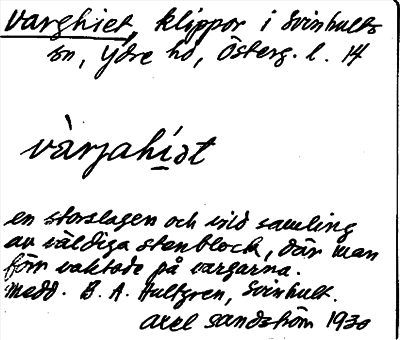 varghiet, klippor i Svinhults
sn, Ydre hd, Österg. l. 14
vàrjahíət
en storslagen och vild samling
av väldiga stenblock, där man
förr vaktade på vargarna.
Medd. B. A. Hultgren, Svinhult.
Axel Sandström 1930